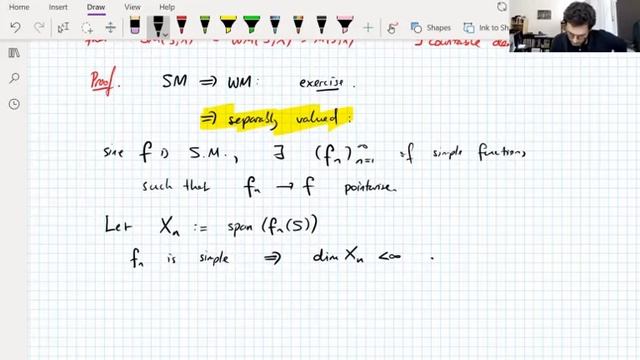 Home Insert Draw View
Shapes Ink to Sh
countable
Proof. SM ⇒ WM: exercise.
⇒ separably valued:
since f is S.M., ∃ (fₙ)ₙ₌₁^∞ of simple functions,
such that fₙ → f pointwise.
Let Xₙ := span(fₙ(S))
fₙ is simple ⇒ dim Xₙ < ∞.